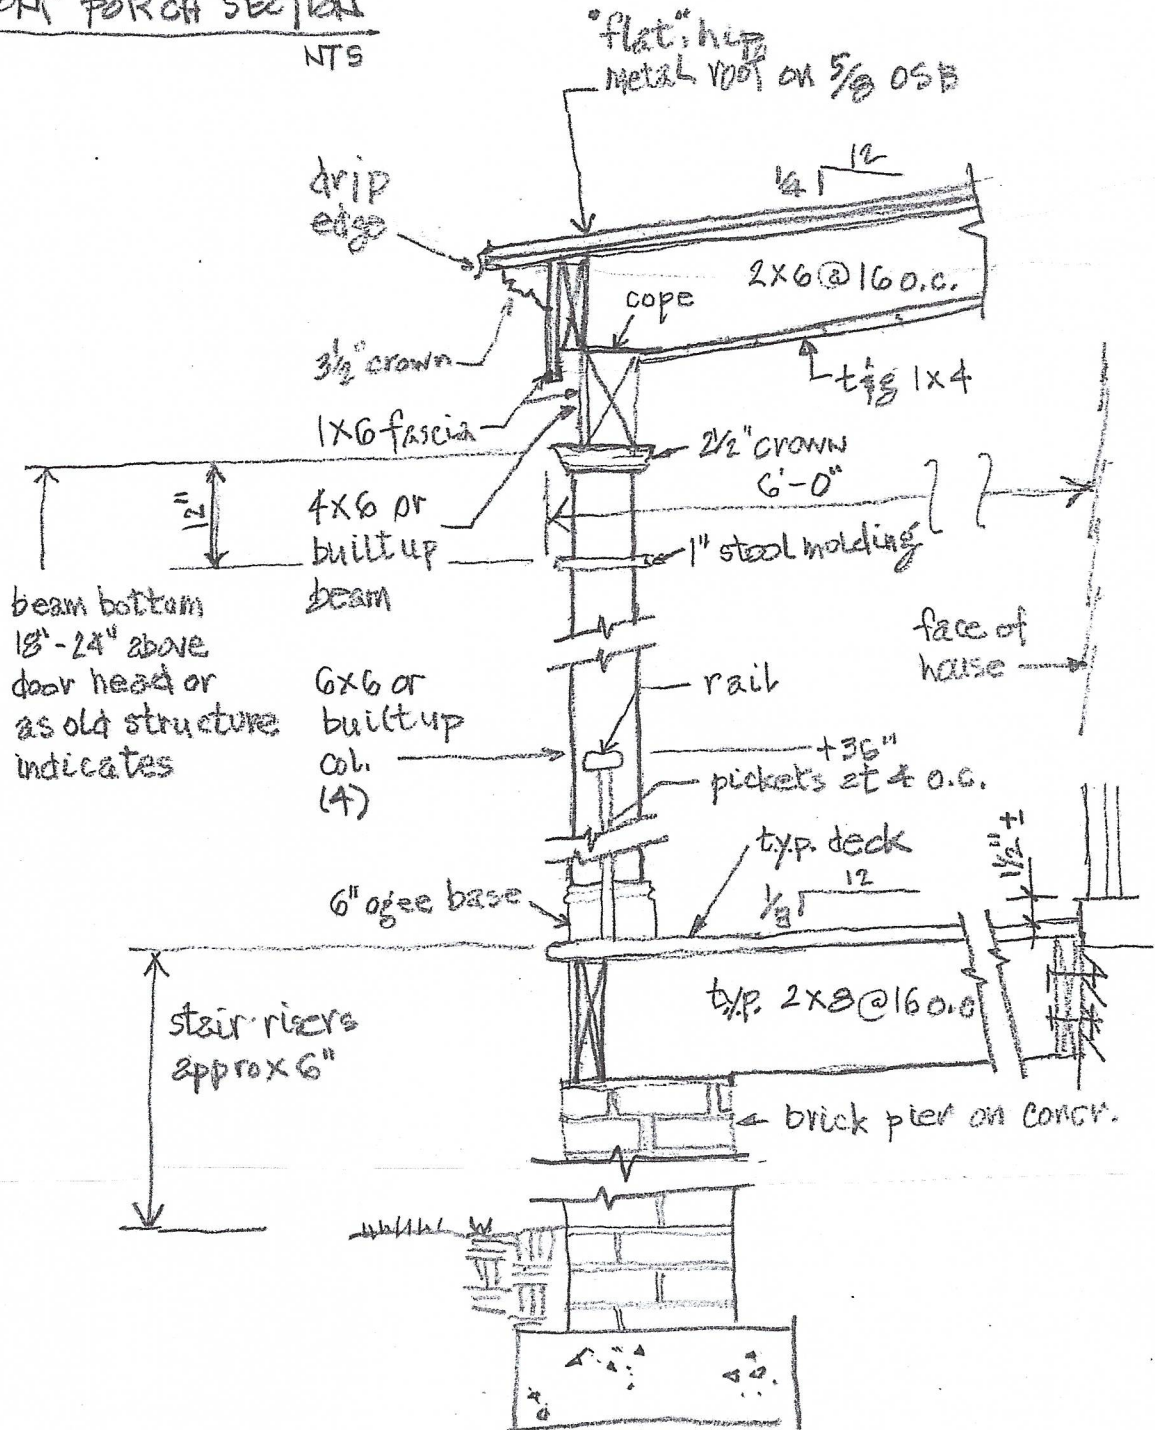 PORCH SECTION
NTS
"flat" hip
metal roof on 5/8 OSB
12
1/4
drip
edge
2x6 @ 16 o.c.
cope
3½" crown
t&g 1x4
1x6 fascia
2½" crown
6'-0"
12"
4x6 or
built up
beam
1" stool molding
beam bottom
18"-24" above
door head or
as old structure
indicates
face of
house
6x6 or
built up
col.
(4)
rail
+36"
pickets at 4 o.c.
typ. deck
12
1/8
1½" ±
6" ogee base
typ. 2x8 @ 16 o.c
stair risers
approx 6"
brick pier on concr.